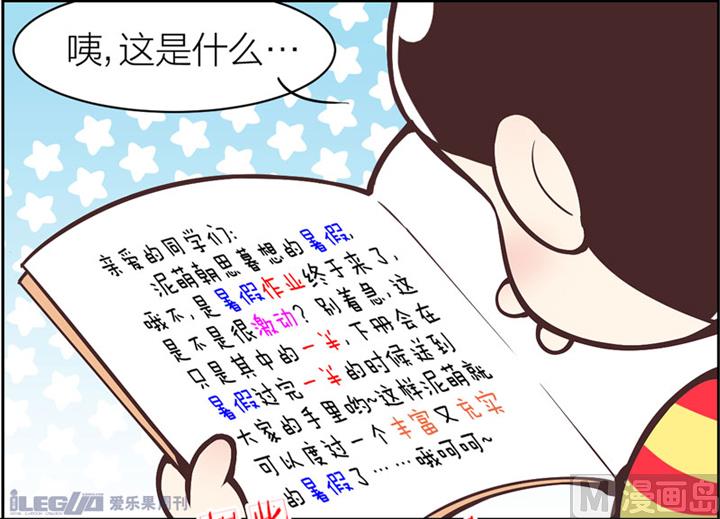 咦,这是什么…
亲爱的同学们:
泥萌朝思暮想的暑假,
哦不,是暑假作业终于来了,
是不是很激动?别着急,这
只是其中的一半,下册会在
暑假过完一半的时候送到
大家的手里哟~这样泥萌就
可以度过一个丰富又充实
的暑假了……哦呵呵~
iLEGUO 爱乐果周刊
M 漫画岛